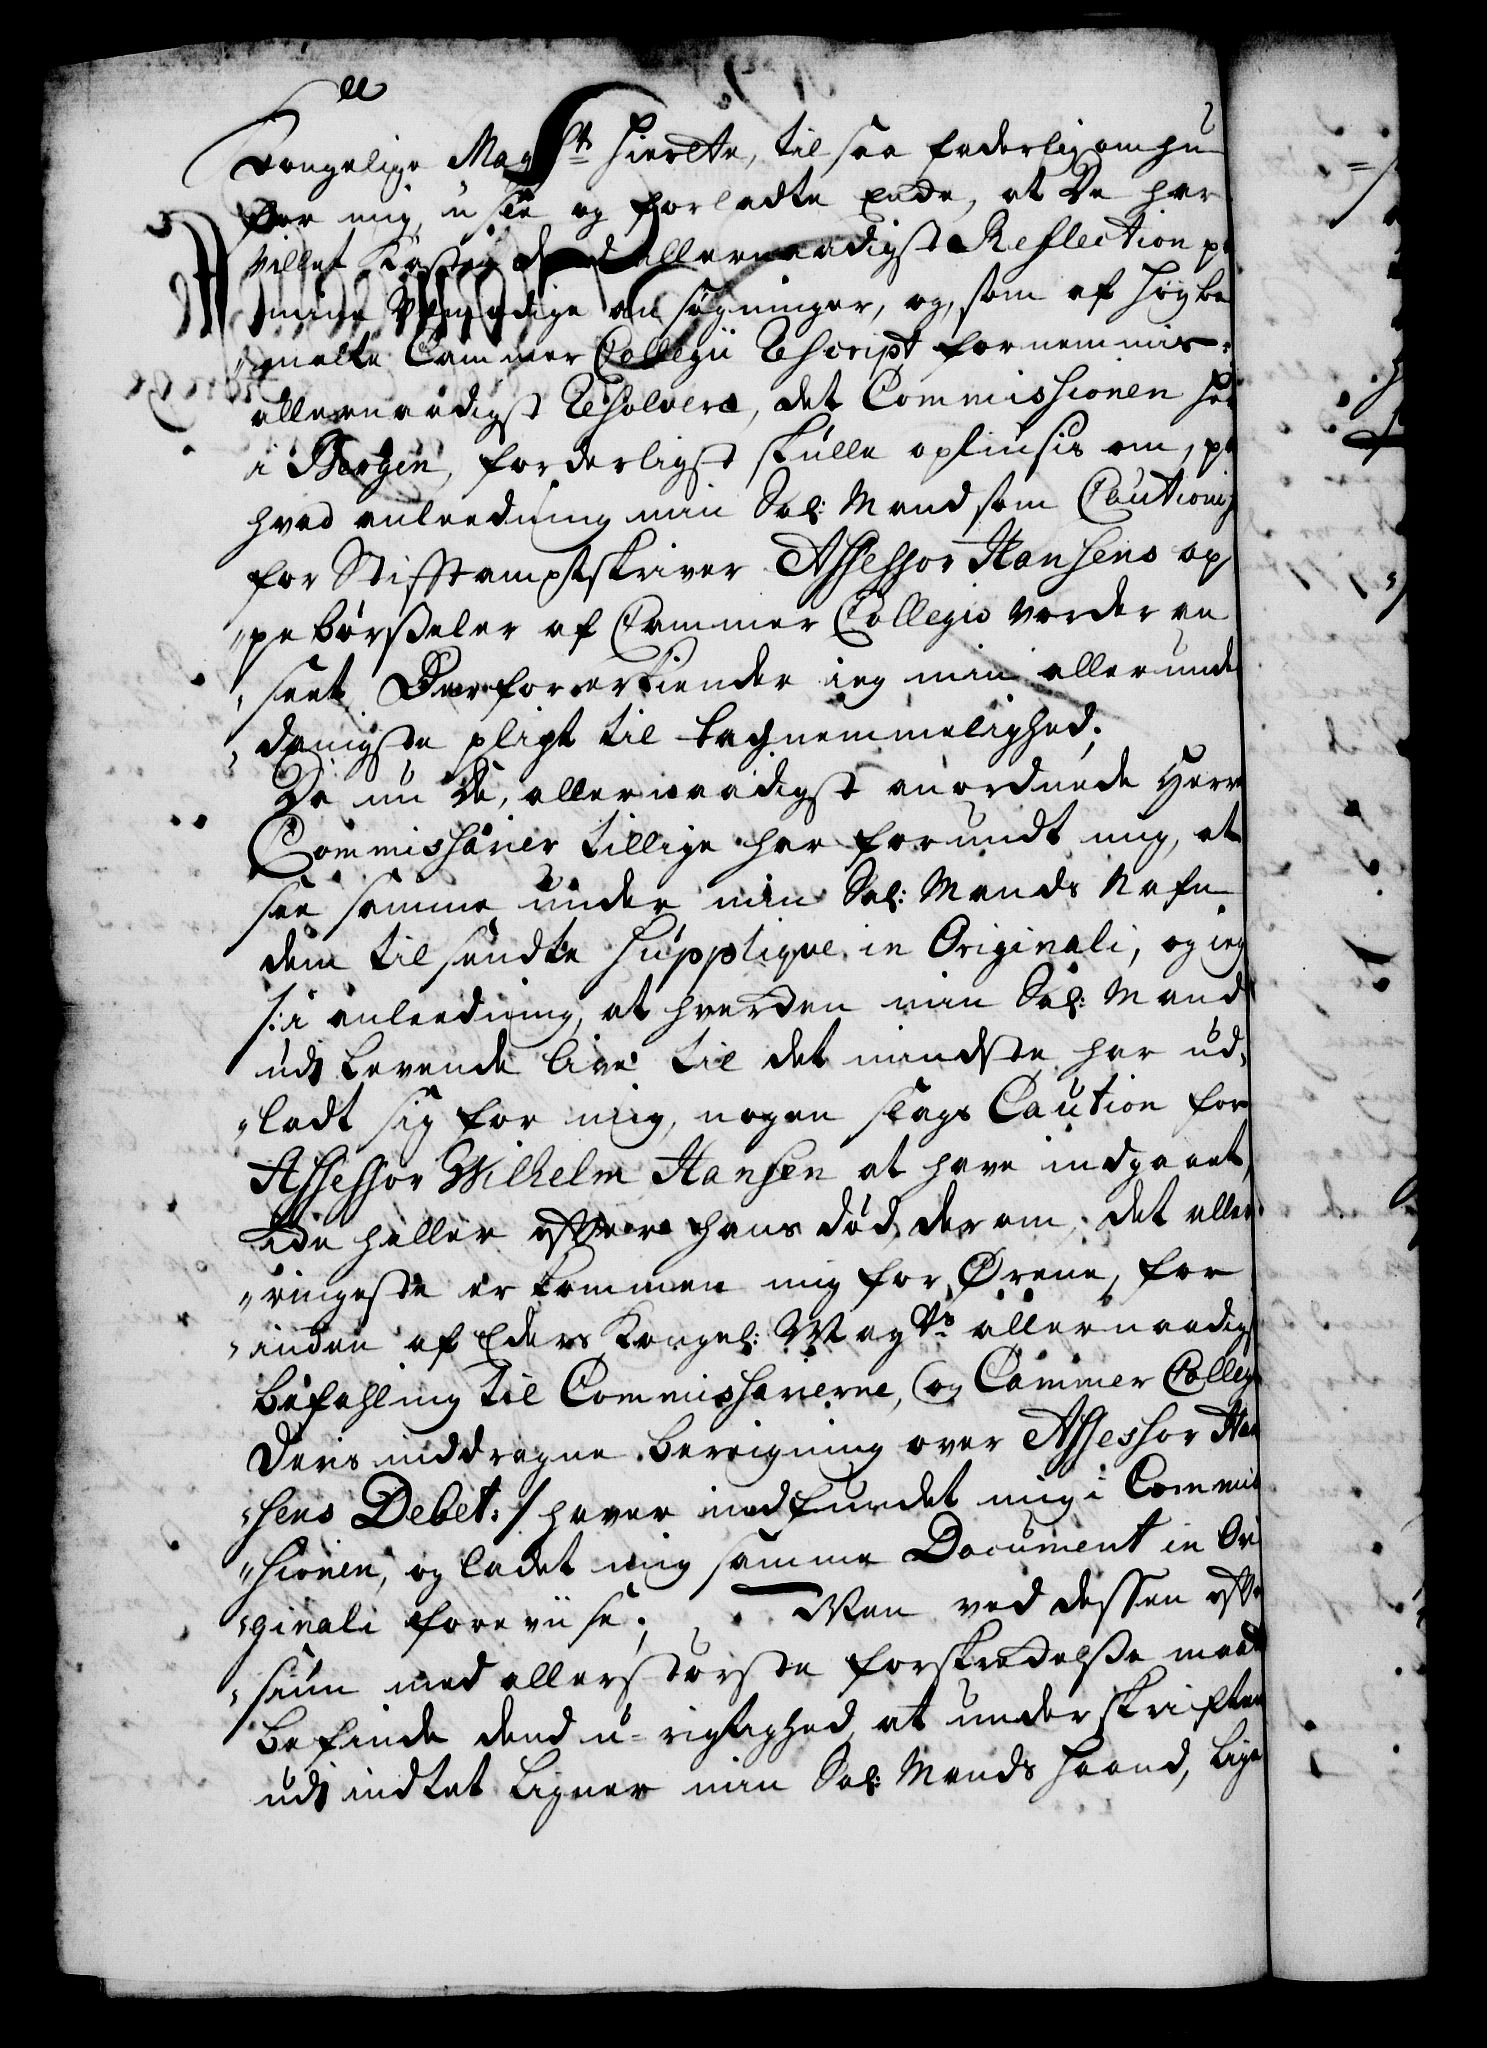 Kongelige Maysts hierte, til saa faderlig omhu
for mig, usle og forladte Enke, at De har
villet kaste dend allernaadigst Reflection p
mine Vemodige an søgninger, og, som af høybe
melte Cammer Collegii Rescript fornemmis.
allernaadigst Resolvere, det Commissionen her
i Bergen, forderligst skulle oplyusis om, pa
hvad anleedning min Sal: Mand som Cautionist
for Stifftamptskriver Assessor Hansens op
pebørsseler af Cammer Collegio vorder an
seet. Derfor erkiender ieg min allerunde
danigste pligt til taknemmelighed;
Da nu de, allernaadigst anordnede Herr
Commissarier tillige har forundt mig, at
see samme under min Sal: Mands Nafn
dem tilsendte Supplique in Originali, og ieg
/: i anleedning, at hverken min Sal: Mand
udj Levende live til det mindste har ud-
ladt sig for mig, nogen slags Caution for
Assessor Wilhelm Hansen at have indgaaet,
icke heller effter hans død, derom, det aller
ringeste er kommen mig for Ørene, for
inden af Eders Kongel: Mayts allernaadigst
befahling til Commissarierne, og Cammer Colleg
Deris inddragne beregning over Assessor Han
sens Debet :/ haver indfundet mig i Commis
sionen, og ladet mig samme Document in Ori
ginali foreviise; Men ved dessen effter
siun med allerstørste forskreckelsse maat
befinde dend u-rigtighed, at underskriften
udj indtet ligner min Sal: Mands haand, lige